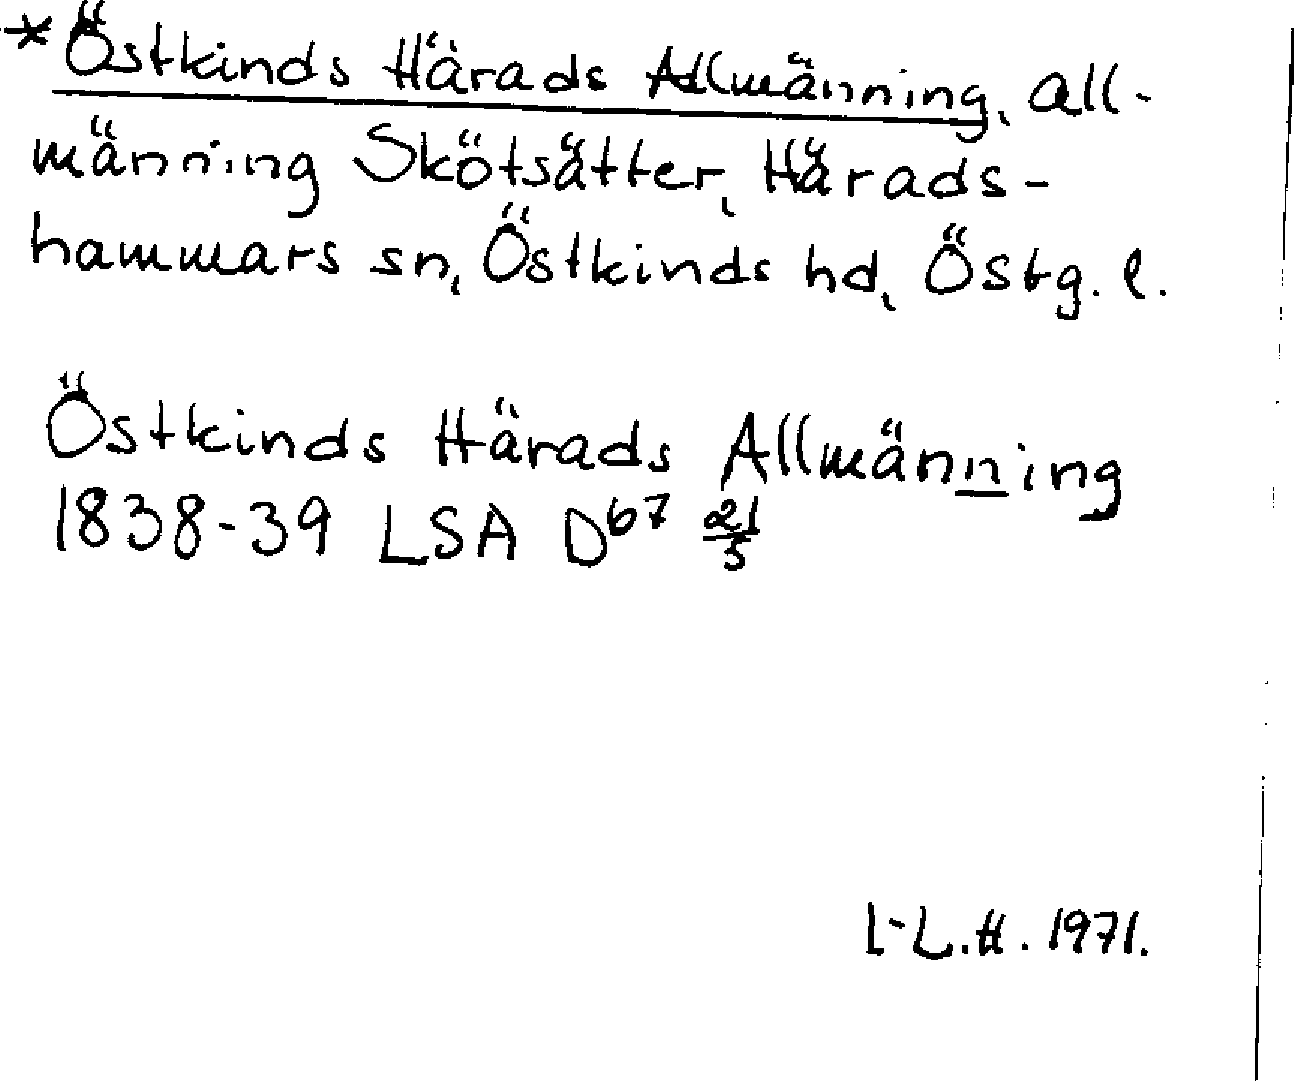 *Östkinds Härads Allmänning, all-
männing Skötsätter, Härads-
hammars sn, Östkinds hd, Östg. l.
Östkinds Härads Allmänning
1838-39 LSA D67 21/5
I-L.H. 1971.